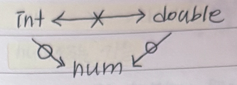 int double
num